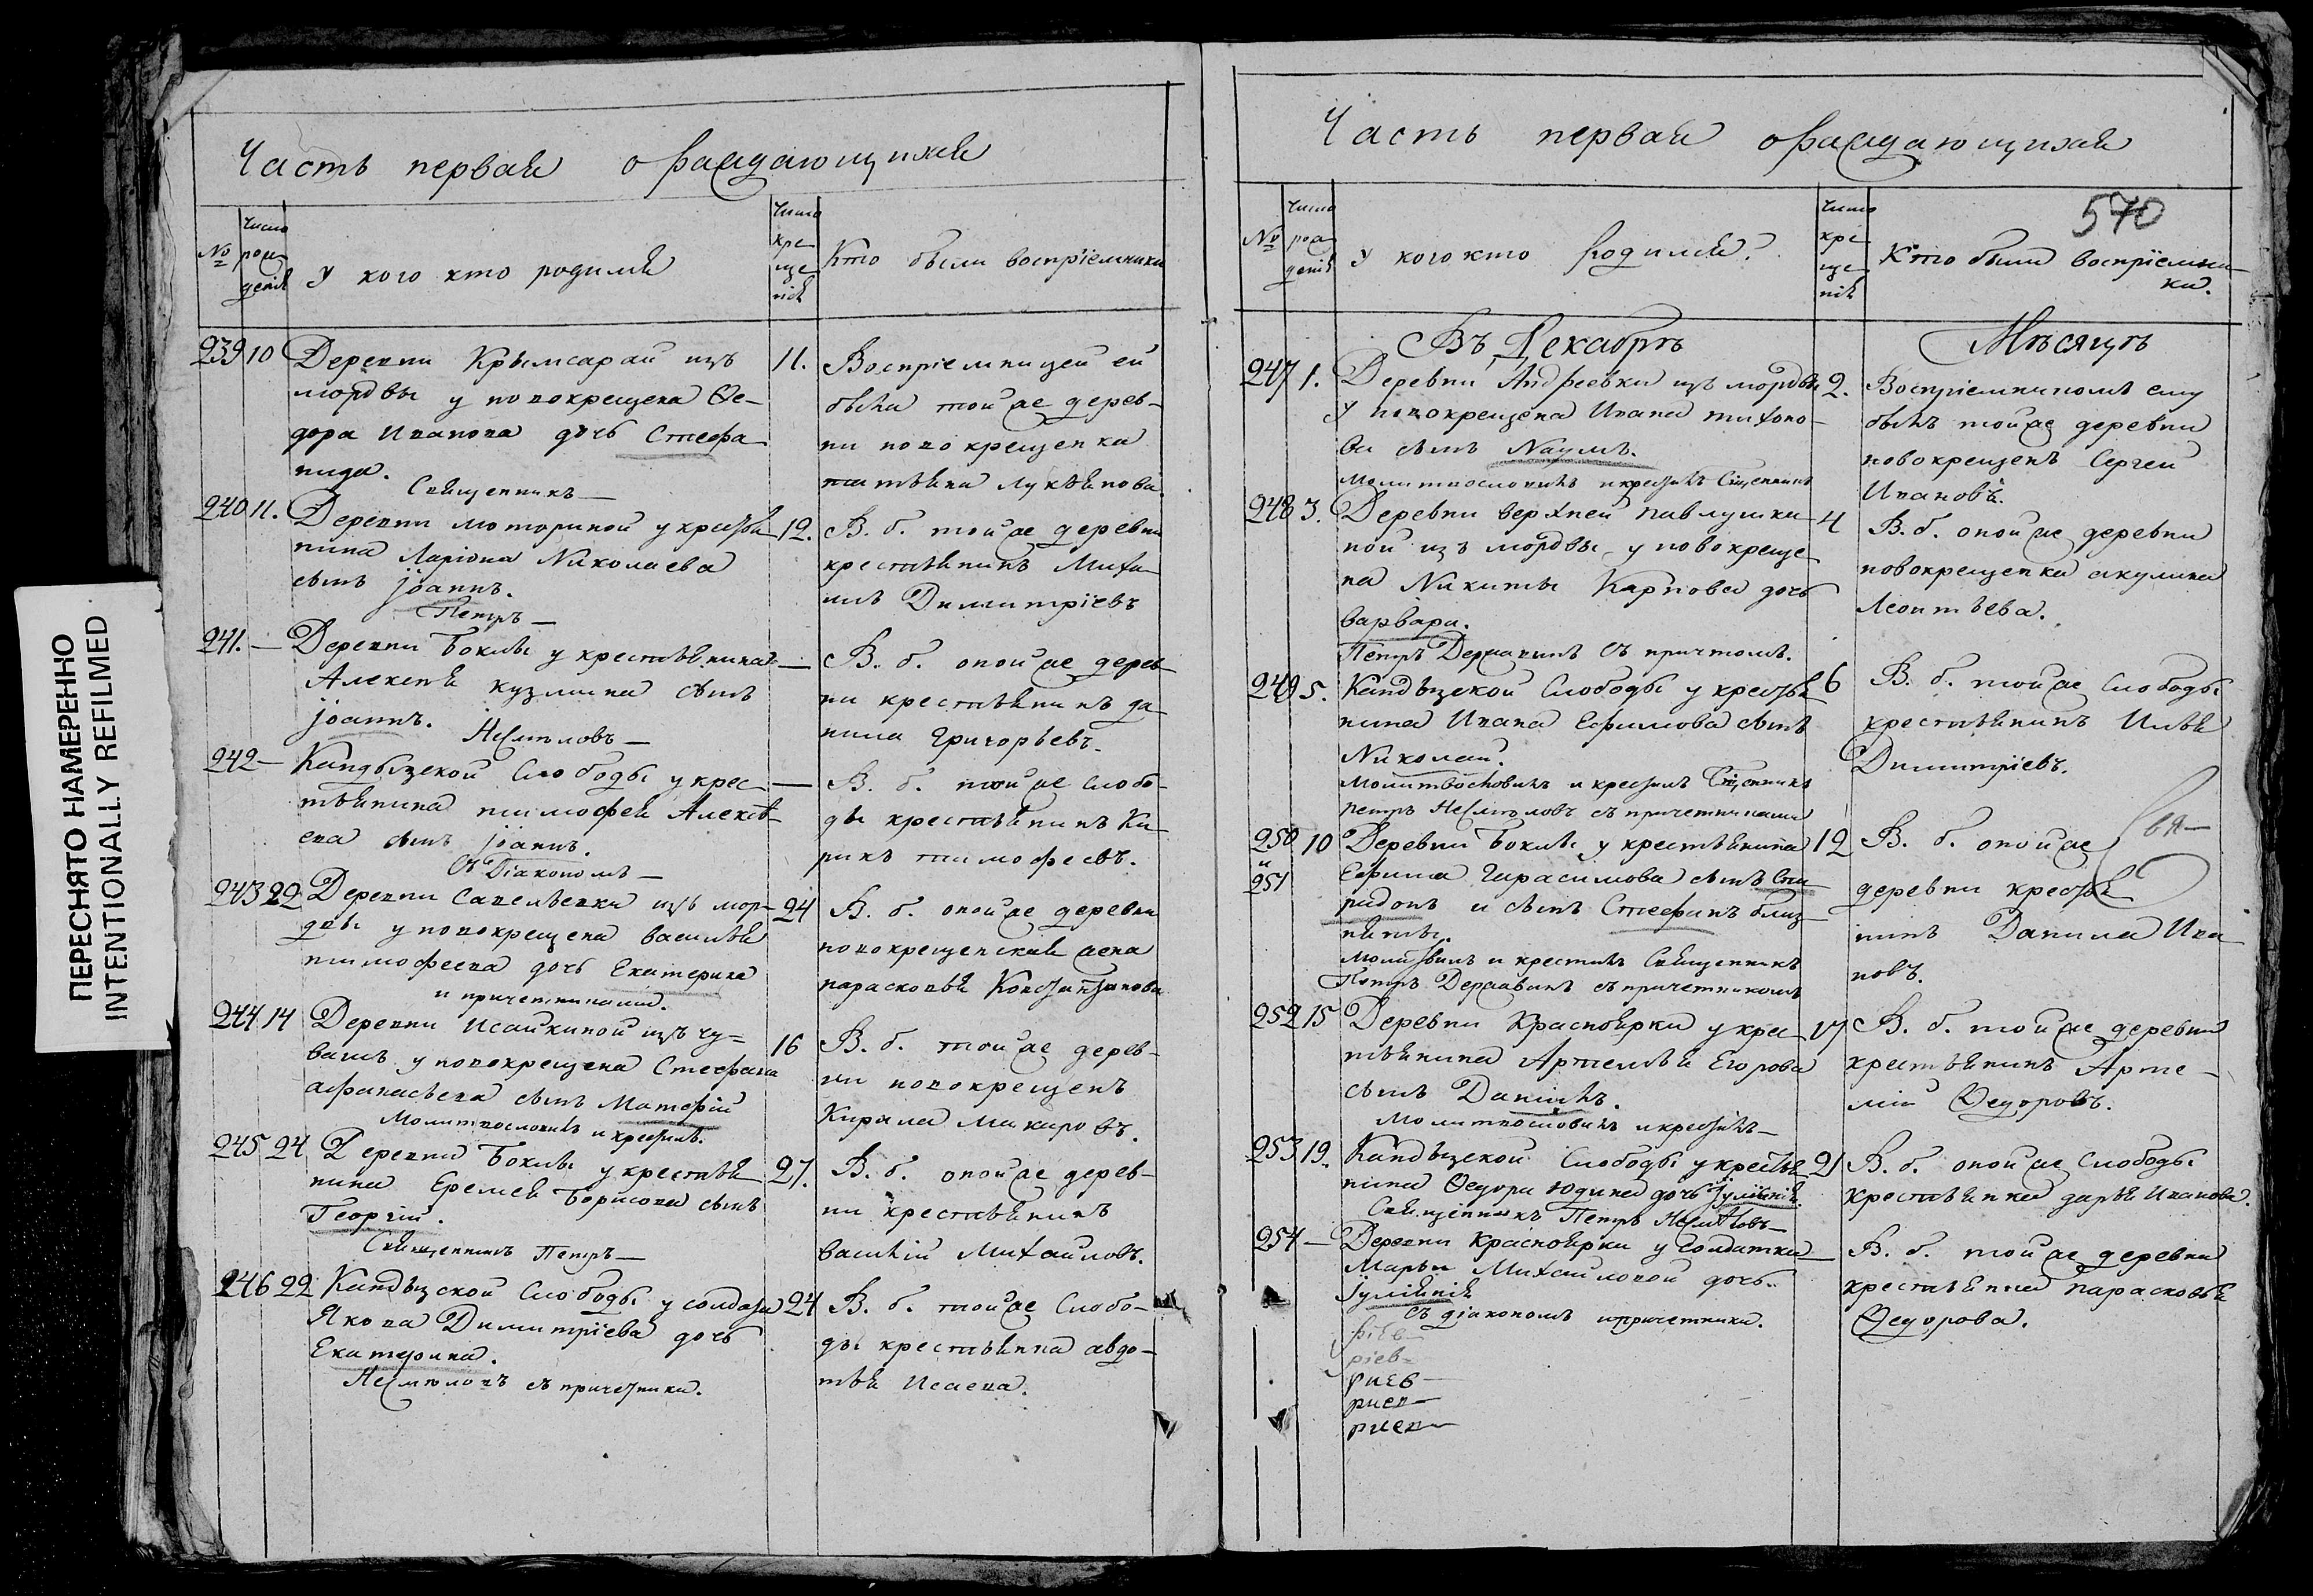 ПЕРЕСНЯТО НАМЕРЕННО
INTENTIONALLY REFILMED
Часть первая о раждающихся
№
число рож
денія
У кого кто родился
число
кре
ще
нія
Кто были воспріемники
239 10 Деревни Крымсараи изъ
мордвы у новокрещена Ѳе-
дора Иванова дочь Стефа
нида.
Священникъ —
11. Воспріемницей ей
была той же дерев-
ни новокрещенка
татьяна Лукьянова
240 11. Деревни моториной у крестья
нина Ларіона Николаева
сынъ Іоаннъ.
Петръ —
12. В. б. той же деревни
крестьянинъ Миха
илъ Димитріевъ
241. — Деревни Боклы у крестьянина
Алексѣя кузмина сынъ
Іоаннъ. Несмѣловъ —
— В. б. оной же дерев
ни крестьянинъ да
нила Григорьевъ.
242 — Кандызской Слободы у крес
тьянина тимофея Алексѣ-
ева сынъ Іоаннъ.
Съ Діакономъ —
— В. б. той же слобо-
ды крестьянинъ Ки-
рикъ тимофеевъ.
243 22 Деревни Савельевки изъ мор-
двы у новокрещена василья
тимофеева дочь Екатерина
и причетниками.
24 В. б. оной же деревни
новокрещенская жена
парасковья Константинова
244 14 Деревни Исайкиной изъ чу=
вашъ у новокрещена Стефана
афанасьева сынъ
Молитвословилъ и крестилъ.
16 В. б. той же дерев-
ни новокрещенъ
Кирила макаровъ.
245 24 Деревни Боклы у крестья
нина Еремея Борисова сынъ
Георгій.
Священникъ Петръ —
27. В. б. оной же дерев-
ни крестьянинъ
василій Михайловъ.
246 22 Кандызской Слободы у солдата
Якова Димитріева дочь
Екатерина.
Несмѣловъ съ причетники.
24 В. б. той же Слобо-
ды крестьянка авдо-
тья Исаева.
Часть первая о раждающихся
570
№
число
рож
денія
У кого кто родился?
число
кре
ще
нія
Кто были воспріемни-
ки.
Въ Декабрѣ Мѣсяцѣ
247 1. Деревни Андреевки изъ мордвы
У новокрещена Ивана тихоно-
ва сынъ Наумъ.
молитвословилъ и крестилъ Сщенникъ
2. Воспріемникомъ ему
былъ той же деревни
новокрещенъ Сергей
Ивановъ.
248 3. Деревни верхней павлушки
ной изъ мордвы у новокреще
на Никиты Карпова дочь
варвара.
Петръ Державинъ съ причтомъ.
4 В. б. оной же деревни
новокрещенка акулина
Леонтьева.
249 5. Кандызской Слободы у крестья
нина Ивана Ефимова сынъ
Николай.
молитвословилъ и крестилъ Сщенникъ
петръ Несмѣловъ съ причетниками
6 В. б. той же Слободы
крестьянинъ Илья
Димитріевъ.
250
и
251
10 Деревни Боклы у крестьянина
Ефима Гарасимова сынъ Спи
ридонъ и сынъ Стефанъ близ
няты.
молитвилъ и крестилъ Священникъ
Петръ Державинъ съ причетникомъ
12 В. б. оной же
вя —
деревни крестья
нинъ Данила Ива
новъ.
252 15 Деревни Красноярки у крес
тьянина Артемья Егорова
сынъ Даніилъ.
Молитвословилъ и крестилъ —
17 В. б. той же деревни
крестьянинъ Арте-
мій Ѳедоровъ.
253 19. Кандызской Слободы у крестья
нина Ѳедора юдина дочь Іуліанія.
Священникъ Петръ Несмѣловъ —
21 В. б. оной же Слободы
крестьянка дарья Иванова.
254 — Деревни Красноярки у солдатки
Марьи Михайловой дочь
Іуліанія
Съ діакономъ и причетники.
— В. б. той же деревни
крестьянка парасковья
Ѳедорова.
ріев
риев
риев
риев